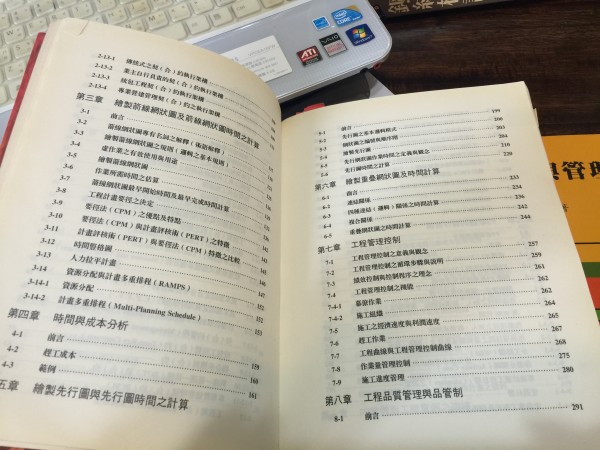 2-13-1 傳統式之契(合)約執行架構
2-13-2 業主自行負責約契(合)約執行架構
2-13-3 統包工程契(合)約執行架構
2-13-4 專業營建管理契(合)約之執行架構
第三章 繪製箭線網狀圖及箭線網狀圖時間之計算
前言
3-1 箭線網狀圖專有名詞之解釋(術語解釋)
3-2 繪製箭線網狀圖之規則(邏輯之基本規則)
3-3 虛作業之有效使用與用途
3-4 繪製箭線網狀圖
3-5 作業所需時間之估算
3-6 箭線網狀圖最早開始時間及最早完成時間計算
3-7 工程計畫要徑之決定
3-8 要徑法(CPM)之優點及特點
3-9 要徑法(CPM)與計畫評核術(PERT)之特徵
3-11 計畫評核術(PERT)與要徑法(CPM)特徵之比較
3-12 時間豎格圖
3-13 人力拉平計畫
3-14 資源分配與計畫多重排程(RAMPS)
3-14-1 資源分配 152
3-14-2 計畫多重排程(Multi-Planning Schedule) 153
第四章 時間與成本分析
4-1 前言 159
4-2 趕工成本 160
4-3 範例 161
五章 繪製先行圖與先行圖時間之計算
5-1 前言 199
5-2 先行圖之基本邏輯模式 203
5-3 網狀圖之編號與順序則 204
5-4 繪製先行圖 209
5-5 先行網狀圖作業時間之定義與觀念 210
5-6 先行圖時間之計算 220
第六章 繪製重疊網狀圖及時間計算
6-1 連結關係 233
6-2 四種連結(邏輯)關係之時間計算 234
6-4 複合關係 236
6-5 重疊網狀圖之時間計算 242
244
第七章 工程管理控制
7-1 工程管理控制之意義與觀念 257
7-2 工程管理控制之循環步驟與說明 259
7-3 績效控制與控制程序之理念 260
7-4 工程管理控制之種能 261
7-4-1 幕僚作業 261
7-4-2 施工組織 261
7-5 施工之經濟速度與利潤速度 261
7-6 趕工作業 265
7-7 工程曲線與工程管理控制曲線 268
7-8 作業量管理控制 275
7-9 施工進度管理 280
第八章 工程品質管理與品管制
8-1 前言 291
ATI
VAIO
CORE
與管理